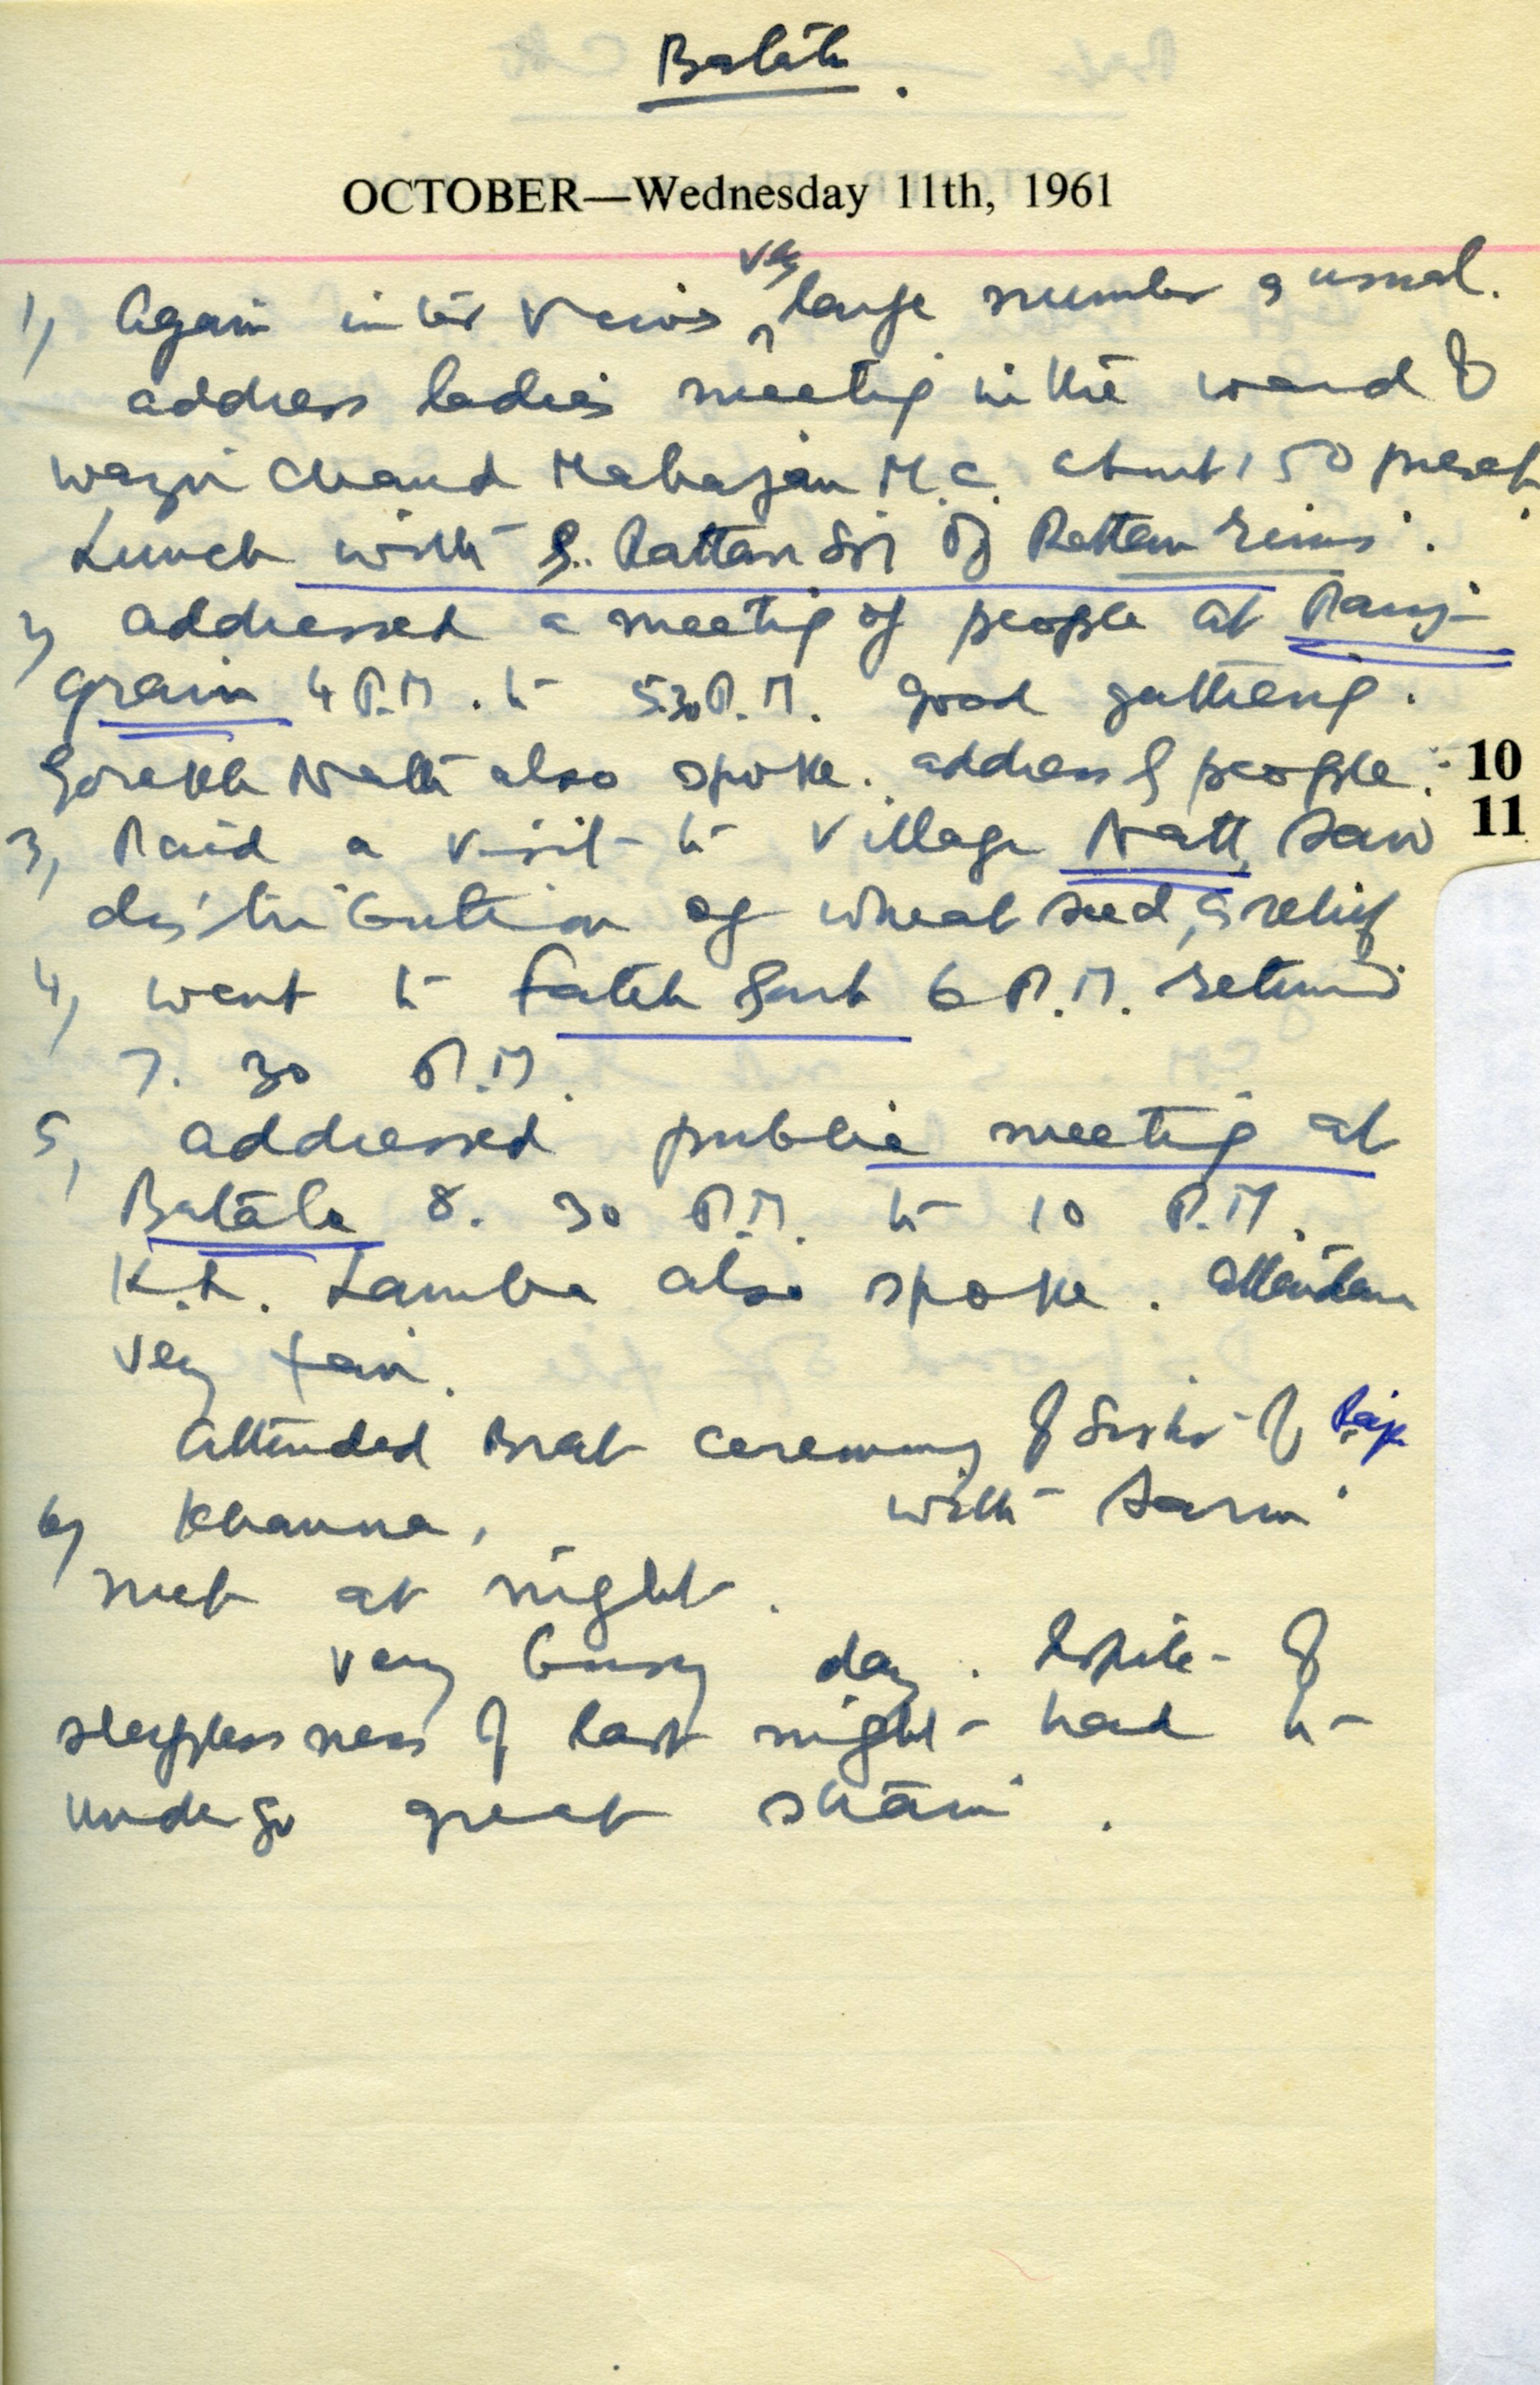 Batala.
OCTOBER—Wednesday 11th, 1961
very
1) Again interviews large number as usual.
address ladies meeting in the ward of
Wazir Chand Mahajan M.C. about 150 present
Lunch with S. Rattan Singh of Rattan
2) addressed a meeting of people at Ranj-
grain 4 P.M. to 5.30 P.M. Good gathering.
Gorakh Nath also spoke. address of people.
10
11
3) Paid a visit to village Natt, saw
distribution of wheat seed, & relief
4) went to Fateh Garh 6 P.M. returned
7. 30 P.M.
5) addressed public meeting at
Batala 8. 30 P.M. to 10 P.M.
K.L. Lamba also spoke. attendance
very fair.
attended Brat ceremony of Sister of
6) Khanna, with
met at night.
very busy day. Inspite of
sleeplessness of last night had to
undergo great strain.